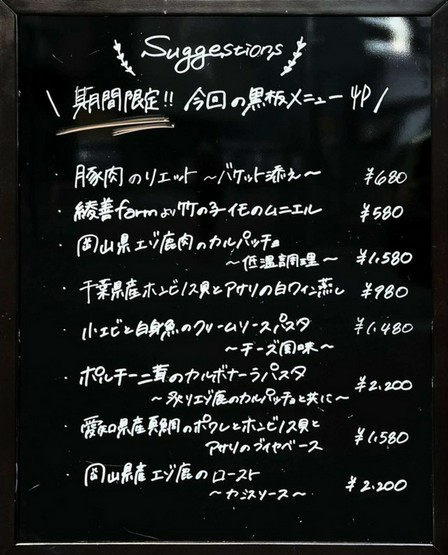 Suggestions
\ 期間限定!! 今回の黒板メニュー /
・豚肉のリエット 〜バケット添え〜 ¥680
・綾善farmより竹の子イモのムニエル ¥580
・岡山県エゾ鹿肉のカルパッチョ
〜低温調理〜 ¥1,580
・千葉県産ホンビノス貝とアサリの白ワイン蒸し ¥980
・小エビと白身魚のクリームソースパスタ ¥1,480
〜チーズ風味〜
・ポルチーニ茸のカルボナーラパスタ ¥2,200
エゾ鹿のカルパッチョと共に〜
・愛知県産真鯛のポワレとホンビノス貝と
アサリのブイヤベース ¥1,580
・岡山県産エゾ鹿のロースト
〜カシスソース〜 ¥2,200